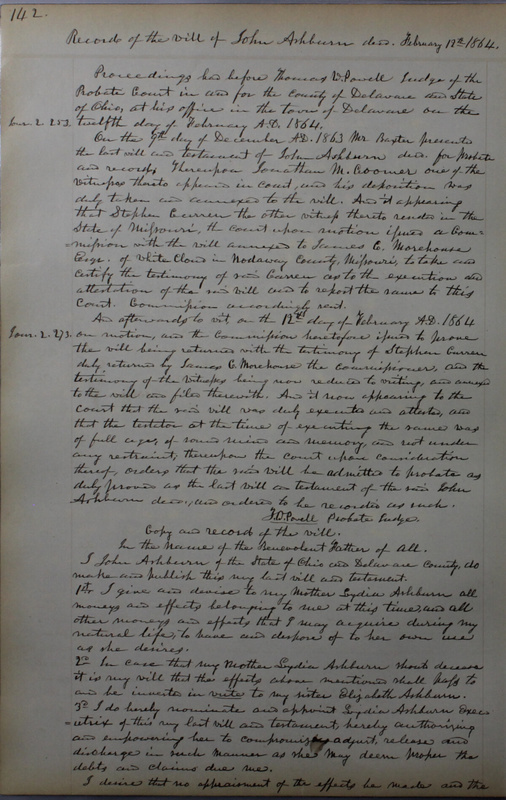 142.
Record of the will of John Ashburn decd. February 12th 1864.
Proceedings had before Thomas W. Powell Judge of the
Probate Court in and for the County of Delaware and State
of Ohio, at his office in the town of Delaware on the
Jour. 2. 253. twelfth day of February A.D. 1864.
On the 9th day of December A.D. 1863 Mr Baxter presents
the last will and testament of John Ashburn decd. for Probate
and record; Thereupon Jonathan M. Coomer one of the
witnesses thereto appeared in court, and his deposition was
duly taken and annexed to the will. And it appearing
that Stephen Curren the other witness thereto resides in the
State of Missouri, the court upon motion issued a Com=
=mission with the will annexed to James C. Morehouse
Esqr. of White Cloud in Nodaway County, Missouri, to take and
certify the testimony of said Curren as to the execution and
attestation of the said will and to report the same to this
Court. Commission accordingly sent.
And afterwards to wit, on the 12th day of February A.D. 1864
Jour. 2. 273. on motion, and the Commission heretofore issued to prove
the will being returned with the testimony of Stephen Curren
duly returned by James C. Morehouse the commissioner, and the
testimony of the witnesses being now reduced to writing, and annexed
to the will and filed therewith. And it now appearing to the
court that the said will was duly executed and attested, and
that the testator at the time of executing the same was
of full age, of sound mind and memory, and not under
any restraint; thereupon the court upon consideration
thereof, orders that the said will be admitted to probate as
duly proven as the last will and testament of the said John
Ashburn decd., and ordered to be recorded as such.
T.W. Powell Probate Judge.
Copy and record of the will.
In the name of the Benevolent Father of All.
I John Ashburn of the State of Ohio and Delaware County, do
make and publish this my last will and testament.
1st. I give and devise to my Mother Lydia Ashburn all
moneys and effects belonging to me at this time, and all
other moneys and effects that I may acquire during my
natural life, to have and dispose of to her own use
as she desires.
2nd In case that my Mother Lydia Ashburn should decease
it is my will that the effects above mentioned shall pass to
and be invested in my sister Elizabeth Ashburn.
3d. I do hereby nominate and appoint Lydia Ashburn Exec=
=utrix of this my last will and testament, hereby authorizing
and empowering her to compromise, adjust, release and
discharge in such manner as she may deem proper the
debts and claims due me.
I desire that no appraisement of the effects be made and the